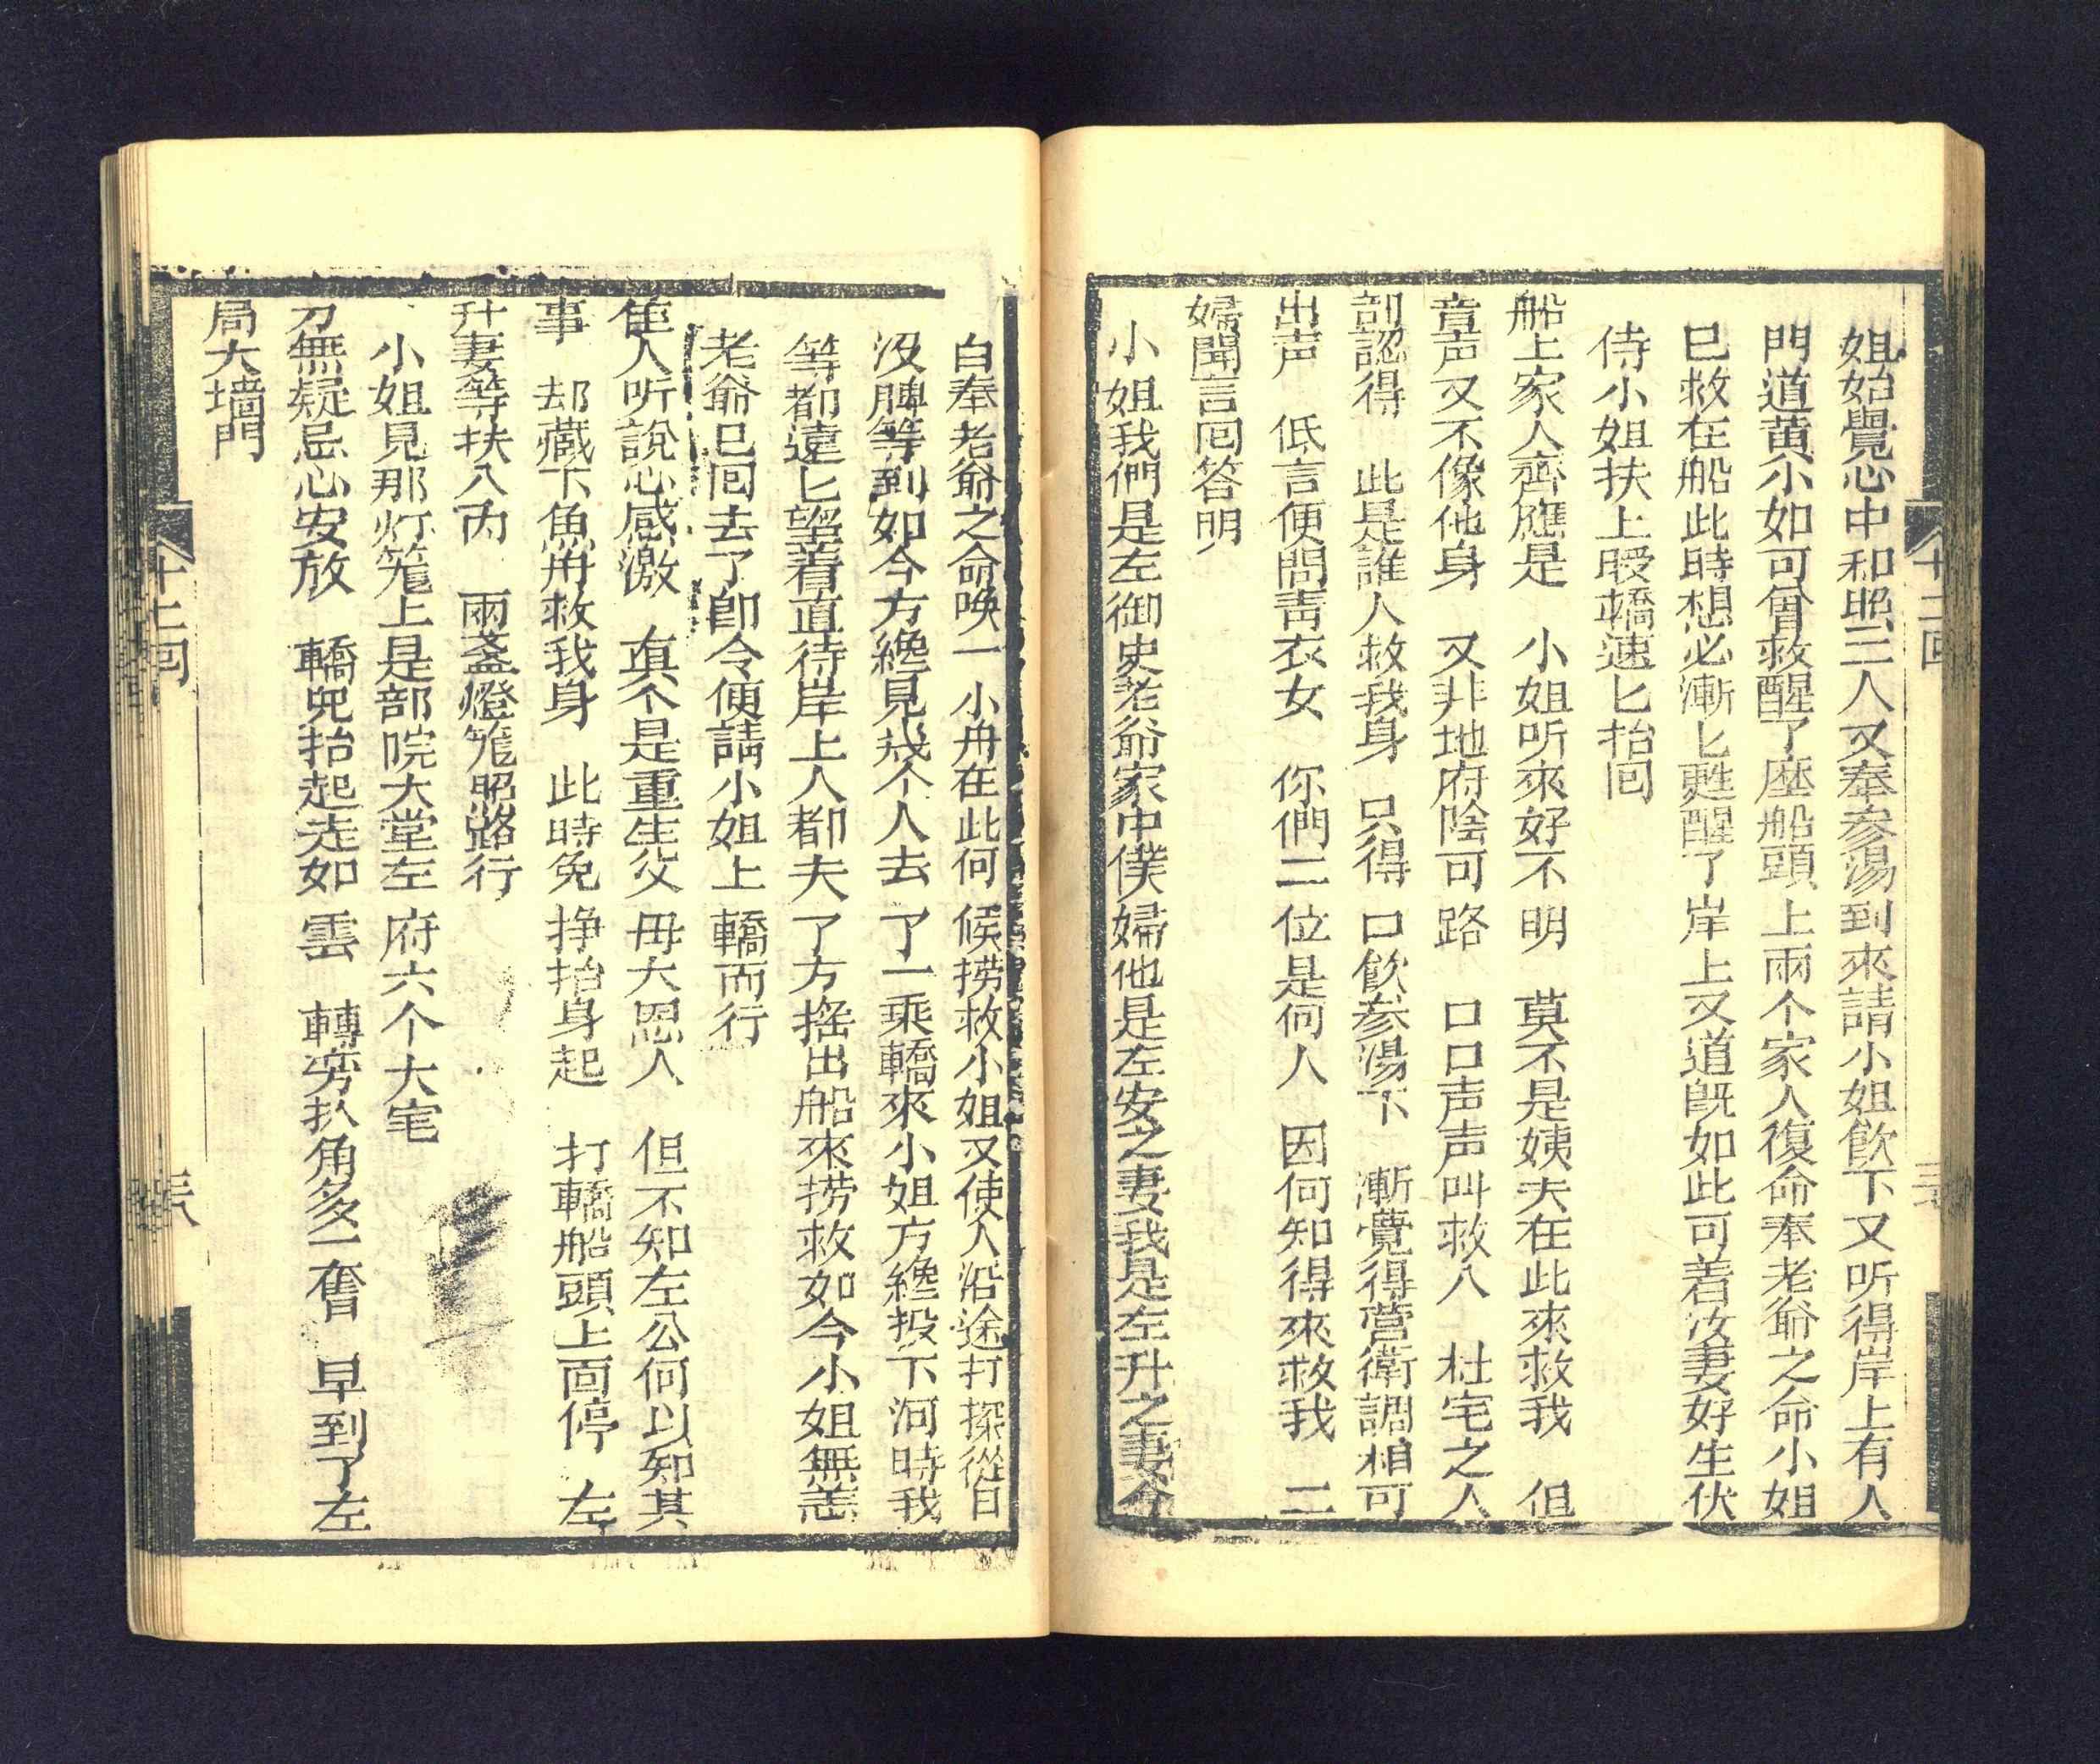 姐始覺心中和照二人又奉參湯到來請小姐飲下又听得岸上有人
門道黄小如可曾救醒了座船頭上兩个家人復命奉老爺之命小姐
巳救在船此時想必漸匕甦醒了岸上又道旣如此可着汝妻好生伏
侍小姐扶上暖轎速匕抬囘
船上家人齊應是 小姐听來好不明 莫不是姨夫在此來救我 但
音声又不像他身 又非地府陰可路 口口声声叫救人 杜宅之人
認得 此是誰人救我身 只得口飲參湯下 漸覺得營衛調和可
出声 低言便問靑衣女 你們二位是何人 因何知得來救我 二
婦聞言囘答明
小姐我們是左御史老爺家中僕婦他是左安之妻我是左升之妻今
白奉老爺之命喚一小舟在此何候撈救小姐又使人沿途打探從日
没脾等到如今方纔見幾个人去了一乘轎來小姐方纔投下河時我
等都遠匕望着直待岸上人都去了方搖出船來撈救如今小姐無恙
老爺巳囘去了卽令便請小姐上轎而行
佳人听說心感激 眞个是重生父毋大恩人 但不知左公何以知其
事 却藏下魚舟救我身 此時免掙抬身起 打轎船頭上面停 左
升妻等扶入內 兩盞燈籠照路行
小姐見那灯籠上是部院大堂左府六个大宅
刀無疑忌心安放 轎兜抬起走如雲 轉旁扒角多一奮 早到了左
局大墻門
十二囘